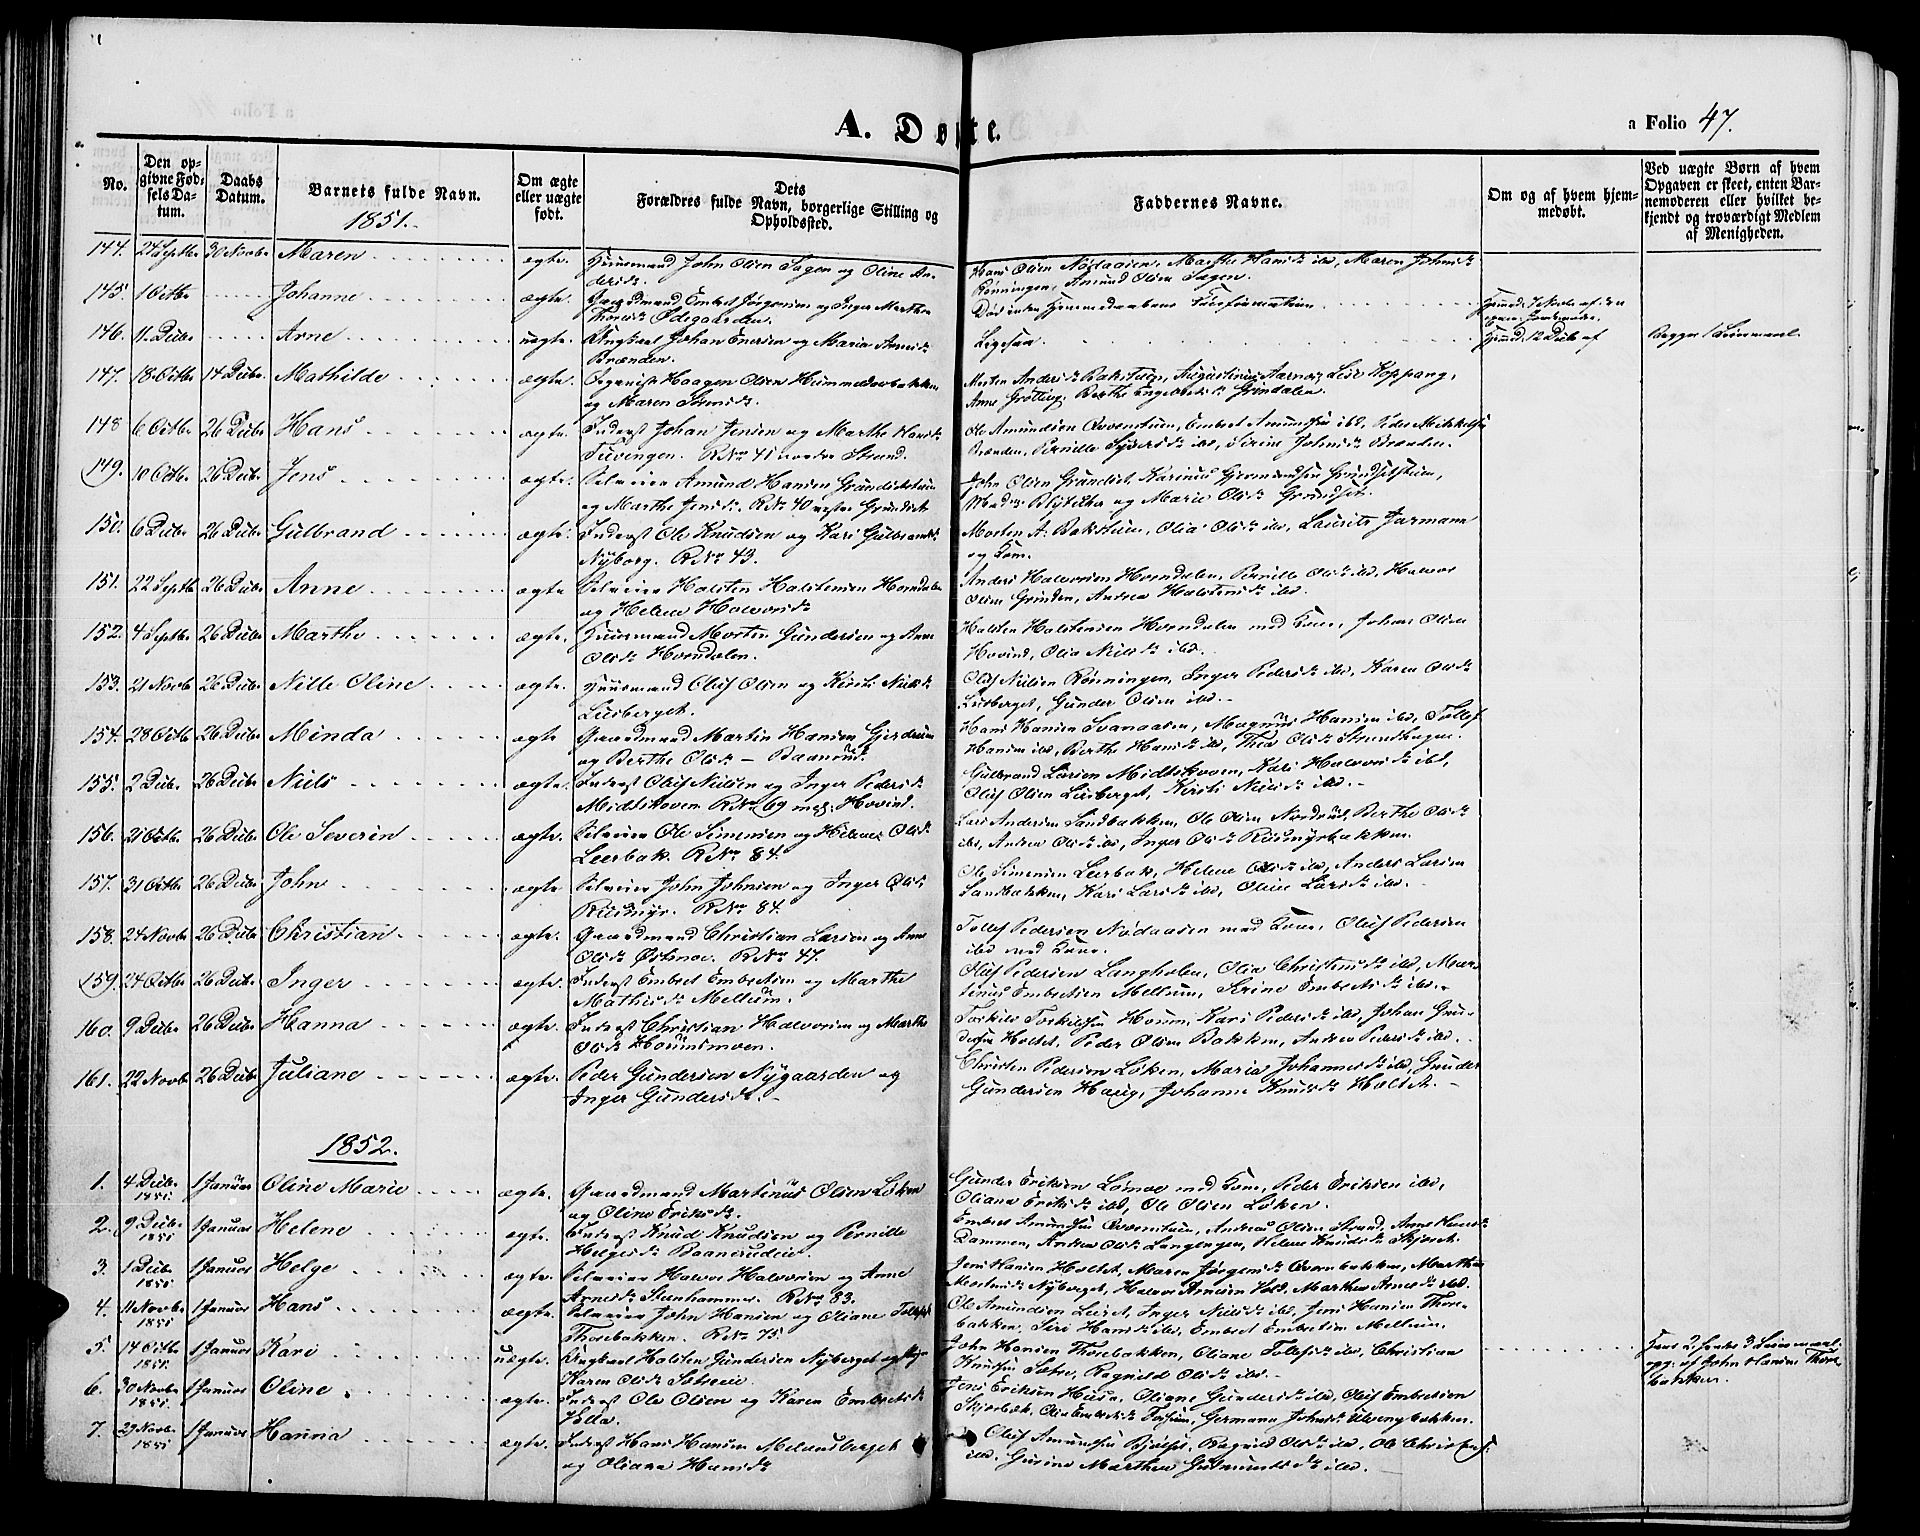 A. Døpte.
a Folio 47.
No.
Den op-
givne Fød-
sels Da-
tum.
Daabs
Datum.
Barnets fulde Navn.
1851.
Om ægte
eller uægte
født.
Dets
Forældres fulde Navn, borgerlige Stilling og
Opholdssted.
Faddernes Navne.
Om og af hvem hjem-
medøbt.
Ved uægte Børn af hvem
Opgaven er skeet, enten Bar-
nemoderen eller hvilket be-
kjendt og troværdigt Medlem
af Menigheden.
144. 24 Septbr 30 Novbr Maren ægte. Huusmand John Olsen Sagen og Oline An-
dersd. Hans Olsen
Rønningen, Amund Olsen Sagen.
145. 1 Octbr Johanne ægte. Gaardmand Embret Jørgensen og Inger Marthea
Ødegaarden. Død inden Hjemmedaabens
146. 11 Decbr Arne uægte. Ungkarl Johan Enersen og Maria Arnesd
Brænden. Ligesaa Hjmd. 12 Decbr af Begges 1 Leiermaal.
147. 18 Octbr 14 Decbr Mathilde ægte. Organist Haagen Olsen Hummeldorbakken
og Maren Morten Andersd Bakstuen, Augustinus Aarnes, Lise Koppang,
Anne Grøtting, Berthe Engebretsd Grindalen.
148 6 Octbr 26 Decbr Hans ægte. Inderst Johan Jensen og Marthe Hansd
Tuvengen. RNo 41 nordre Strand. Ole Amundsen Qvernstuen, Embret Amundsen ibd, Peder Mikkelsen
Brænden, Pernille Syversd ibd, Sirine Johnsd Brænden.
149. 10 Octbr 26 Decbr Jens ægte. Selveier Amund Hansen Grundsetstuen
og Marthe Jensd. RNo 40 vestre Grundset John Olsen Grundset, Karinus Gjermundsen Grundsetstuen,
og Marie Olsd Grundset.
150. 6 Decbr 26 Decbr Gulbrand ægte. Inderst Ole Knudsen og Kari Gulbrandsd
Nyborg. RNo 43. Morten A. Bakstuen, Olia Olsd ibd, Laurits Jarmann
og Kone.
151. 22 Septbr 26 Decbr Anne ægte Selveier Halsten Halstensen Horndalen
og Helene Halvorsd Anders Halvorsen Horndalen, Pernille Olsd ibd, Halvor
Olsen Grinden, Andrea Halstensd ibd.
152. 4 Septbr 26 Decbr Marthe ægte. Huusmand Morten Gundersen og Anne
Olsd Horndalen. Halsten Halstensen Horndalen med Kone, Johan Olsen
Hovind, Olia Nilsd ibd.
153. 21 Novb 26 Decbr Nille Oline ægte. Huusmand Oluf Olsen og Kirsti Nilsd
Lusberget. Oluf Nilsen Rønningen, Inger Pedersd ibd, Karen Olsd
Lusberget, Gunder Olsen ibd.
154. 28 Octb 26 Decbr Minda ægte Gaardmand Martin Hansen Gjerdrum
og Berthe Olsd - Baanrud. Hans Hansen Svenaasen, Magnus Hansen ibd, Tollef
Hansen ibd, Berthe Hansd ibd, Thea Olsd
155. 2 Decbr 26 Decbr Niels ægte. Inderst Oluf Nielsen og Inger Pedersd
Midtskoven RNo 69 Hovind. Gulbrand Larsen Midtskoven, Kari Halvorsd ibd,
Oluf Olsen Lusberget, Kirsti Nilsd ibd.
156. 21 Octbr 26 Decbr Ole Severin ægte. Selveier Ole Simensen og Helene Olsd
Leerbak. RNo 84. Lars Andersen Sandbakken, Ole Olsen Nordrud, Berthe Olsd
ibd, Andrea Olsd ibd, Inger Olsd Risdmyrbakken.
157. 31 Octbr 26 Decbr John ægte Selveier John Johnsen og Inger Olsd
Riismyr. RNo 84. Ole Simensen Leerbak, Helene Olsd ibd, Anders Larsen
Sandbakken, Kari Larsd ibd, Oline Larsd ibd.
158. 24 Novbr 26 Decbr Christian ægte. Gaardmand Christian Larsen og Anne
Olsd Østmoe. RNo 47. Tollef Pedersen Nødaasen med Kone, Oluf Pedersen
ibd med Kone.
159. 24 Octbr 26 Decbr Inger ægte. Inderst Embret Embretsen og Marthe
Mathisd Mellum. Oluf Pedersen Langholen, Olia Christensd ibd, Mar-
tinus Embretsen Mellum, Serine Embretsd ibd.
160. 9 Decbr 26 Decbr Hanna ægte. Inderst Christian Halvorsen og Marthe
Olsd Houmsmoen. Torkild Torkildsen Houm, Kari Pedersd ibd, Johan Gun-
dersen Holtet, Peder Olsen Bakken, Andrea Pedersd ibd.
161. 22 Novb 26 Decbr Juliane ægte. Peder Gundersen Nygaarden og
Inger Gundersd. Christen Pedersen Løken, Maria Johannesd ibd, Gunder
Gundersen Haug, Johanne Knudsd Holset.
1852.
1. 4 Decbr 1851 1 Januar Oline Marie ægte. Gaardmand Martinus Olsen Løken
og Oline Eriksd. Gunder Eriksen Lømoe med Kone, Peder Eriksen ibd,
Oliana Eriksd ibd, Ole Olsen Løken.
2. 9 Decbr 1851 1 Januar Helene ægte. Inderst Knud Knudsen og Pernille
Helgesd Baanrudeie. Embret Amundsen Qvernstuen, Andreas Olsen Strand, Anne Hansd
Dammen, Andrea Olsd Langengen, Helene Knudsd Skjæret.
3. 1 Decbr 1851 1 Januar Helge ægte. Selveier Halvor Halvorsen og Anne
Arnesd Steenhammer. RNo 83. Jens Hansen Holtet, Maren Jørgensd Qvernbakken, Marthea
Mortensd Nyberget, Halvor Arnesen Vold, Marthea Arnesd ibd.
4. 11 Novbr 1851 1 Januar Hans ægte. Selveier John Hansen og Oliane Tollefsd
Thorebakken. RNo 75 Ole Amundsen Leeret, Inger Nilsd ibd, Jens Hansen Thore-
bakken, Siri Hansd ibd, Embret Embretsen Mellum.
5. 14 Octbr 1851. 1 Januar Kari uægte. Ungkarl Halsten Gundersen Nyberget og Pige
Karen Olsd Sætreeie. John Hansen Thorebakken, Oliane Tollefsd ibd, Christian
Knudsen Sætre, Ragnild Olsd ibd. Hans 2 hendes 3 Leiermaal
opg. af John Hansen Thore-
bakken.
6. 30 Novbr 1851. 1 Januar Oline ægte. Inderst Ole Olsen og Karen Embretsd
Jens Eriksen Huse, Oliane Gundersd ibd, Oluf Embretsen
Skjærbæk, Olia Embretsd Germana Johnsd Ulvengbakken.
7. 29 Novbr. 1851 1 Januar Hanna ægte. Inderst Hans Hansen Melaasberget
og Oliana Hansd Oluf Amundsen Bjølset, Ragnild Olsd ibd, Ole Christensen
ibd, Gurine Marthea Gulmundsd ibd.